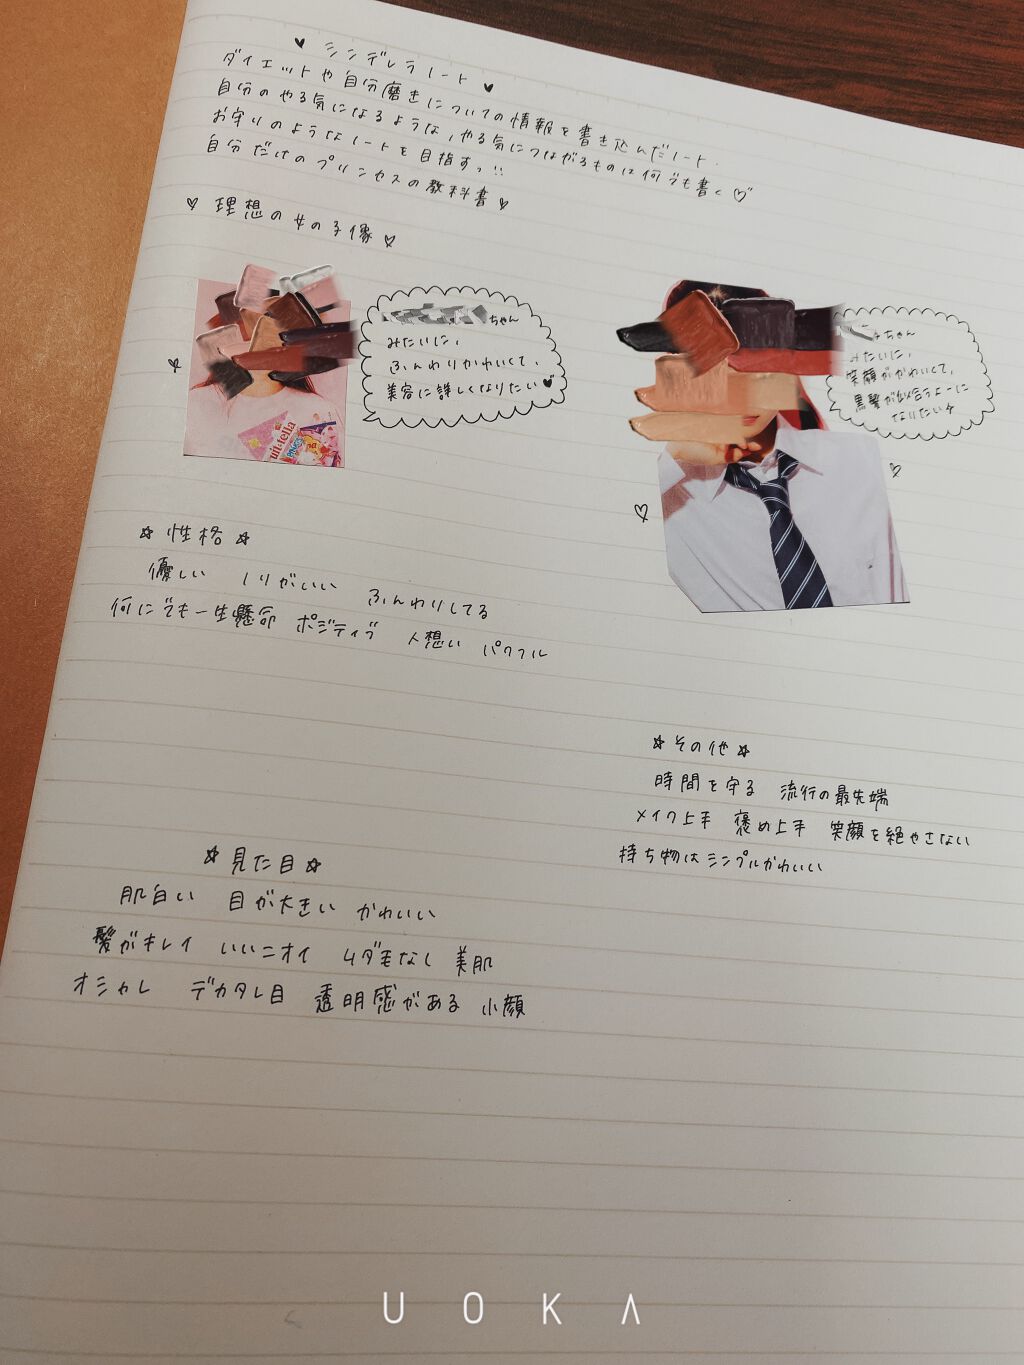 ♥ シンデレラノート ♥
ダイエットや自分磨きについての情報を書き込んだノート.
自分のやる気になるような,やる気につながるものは何でも書く♡
お守りのようなノートを目指すっ!!
自分だけのプリンセスの教科書♥
♡ 理想の女の子像 ♡
ちゃん
みたいに、
ふんわりかわいくて、
美容に詳しくなりたい♥
ちゃん
みたいに、
笑顔がかわいくて、
黒髪が似合うように
なりたい
☆ 性格 ☆
優しい ノリがいい ふんわりしてる
何にでも一生懸命 ポジティブ 人想い パワフル
☆ その他 ☆
時間を守る 流行の最先端
メイク上手 褒め上手 笑顔を絶やさない
持ち物はシンプルかわいい
☆ 見た目 ☆
肌白い 目が大きい かわいい
髪がキレイ いいニオイ ムダ毛なし 美肌
オシャレ デカタレ目 透明感がある 小顔
UOKA